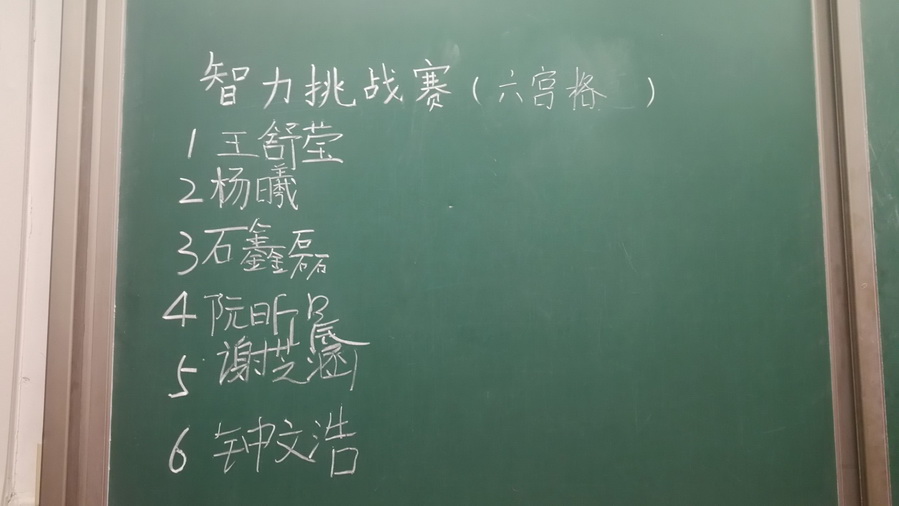 智力挑战赛（六宫格 ）
1 王舒莹
2 杨曦
3 石鑫磊
4 阮昕晨
5 谢芝涵
6 钟文浩